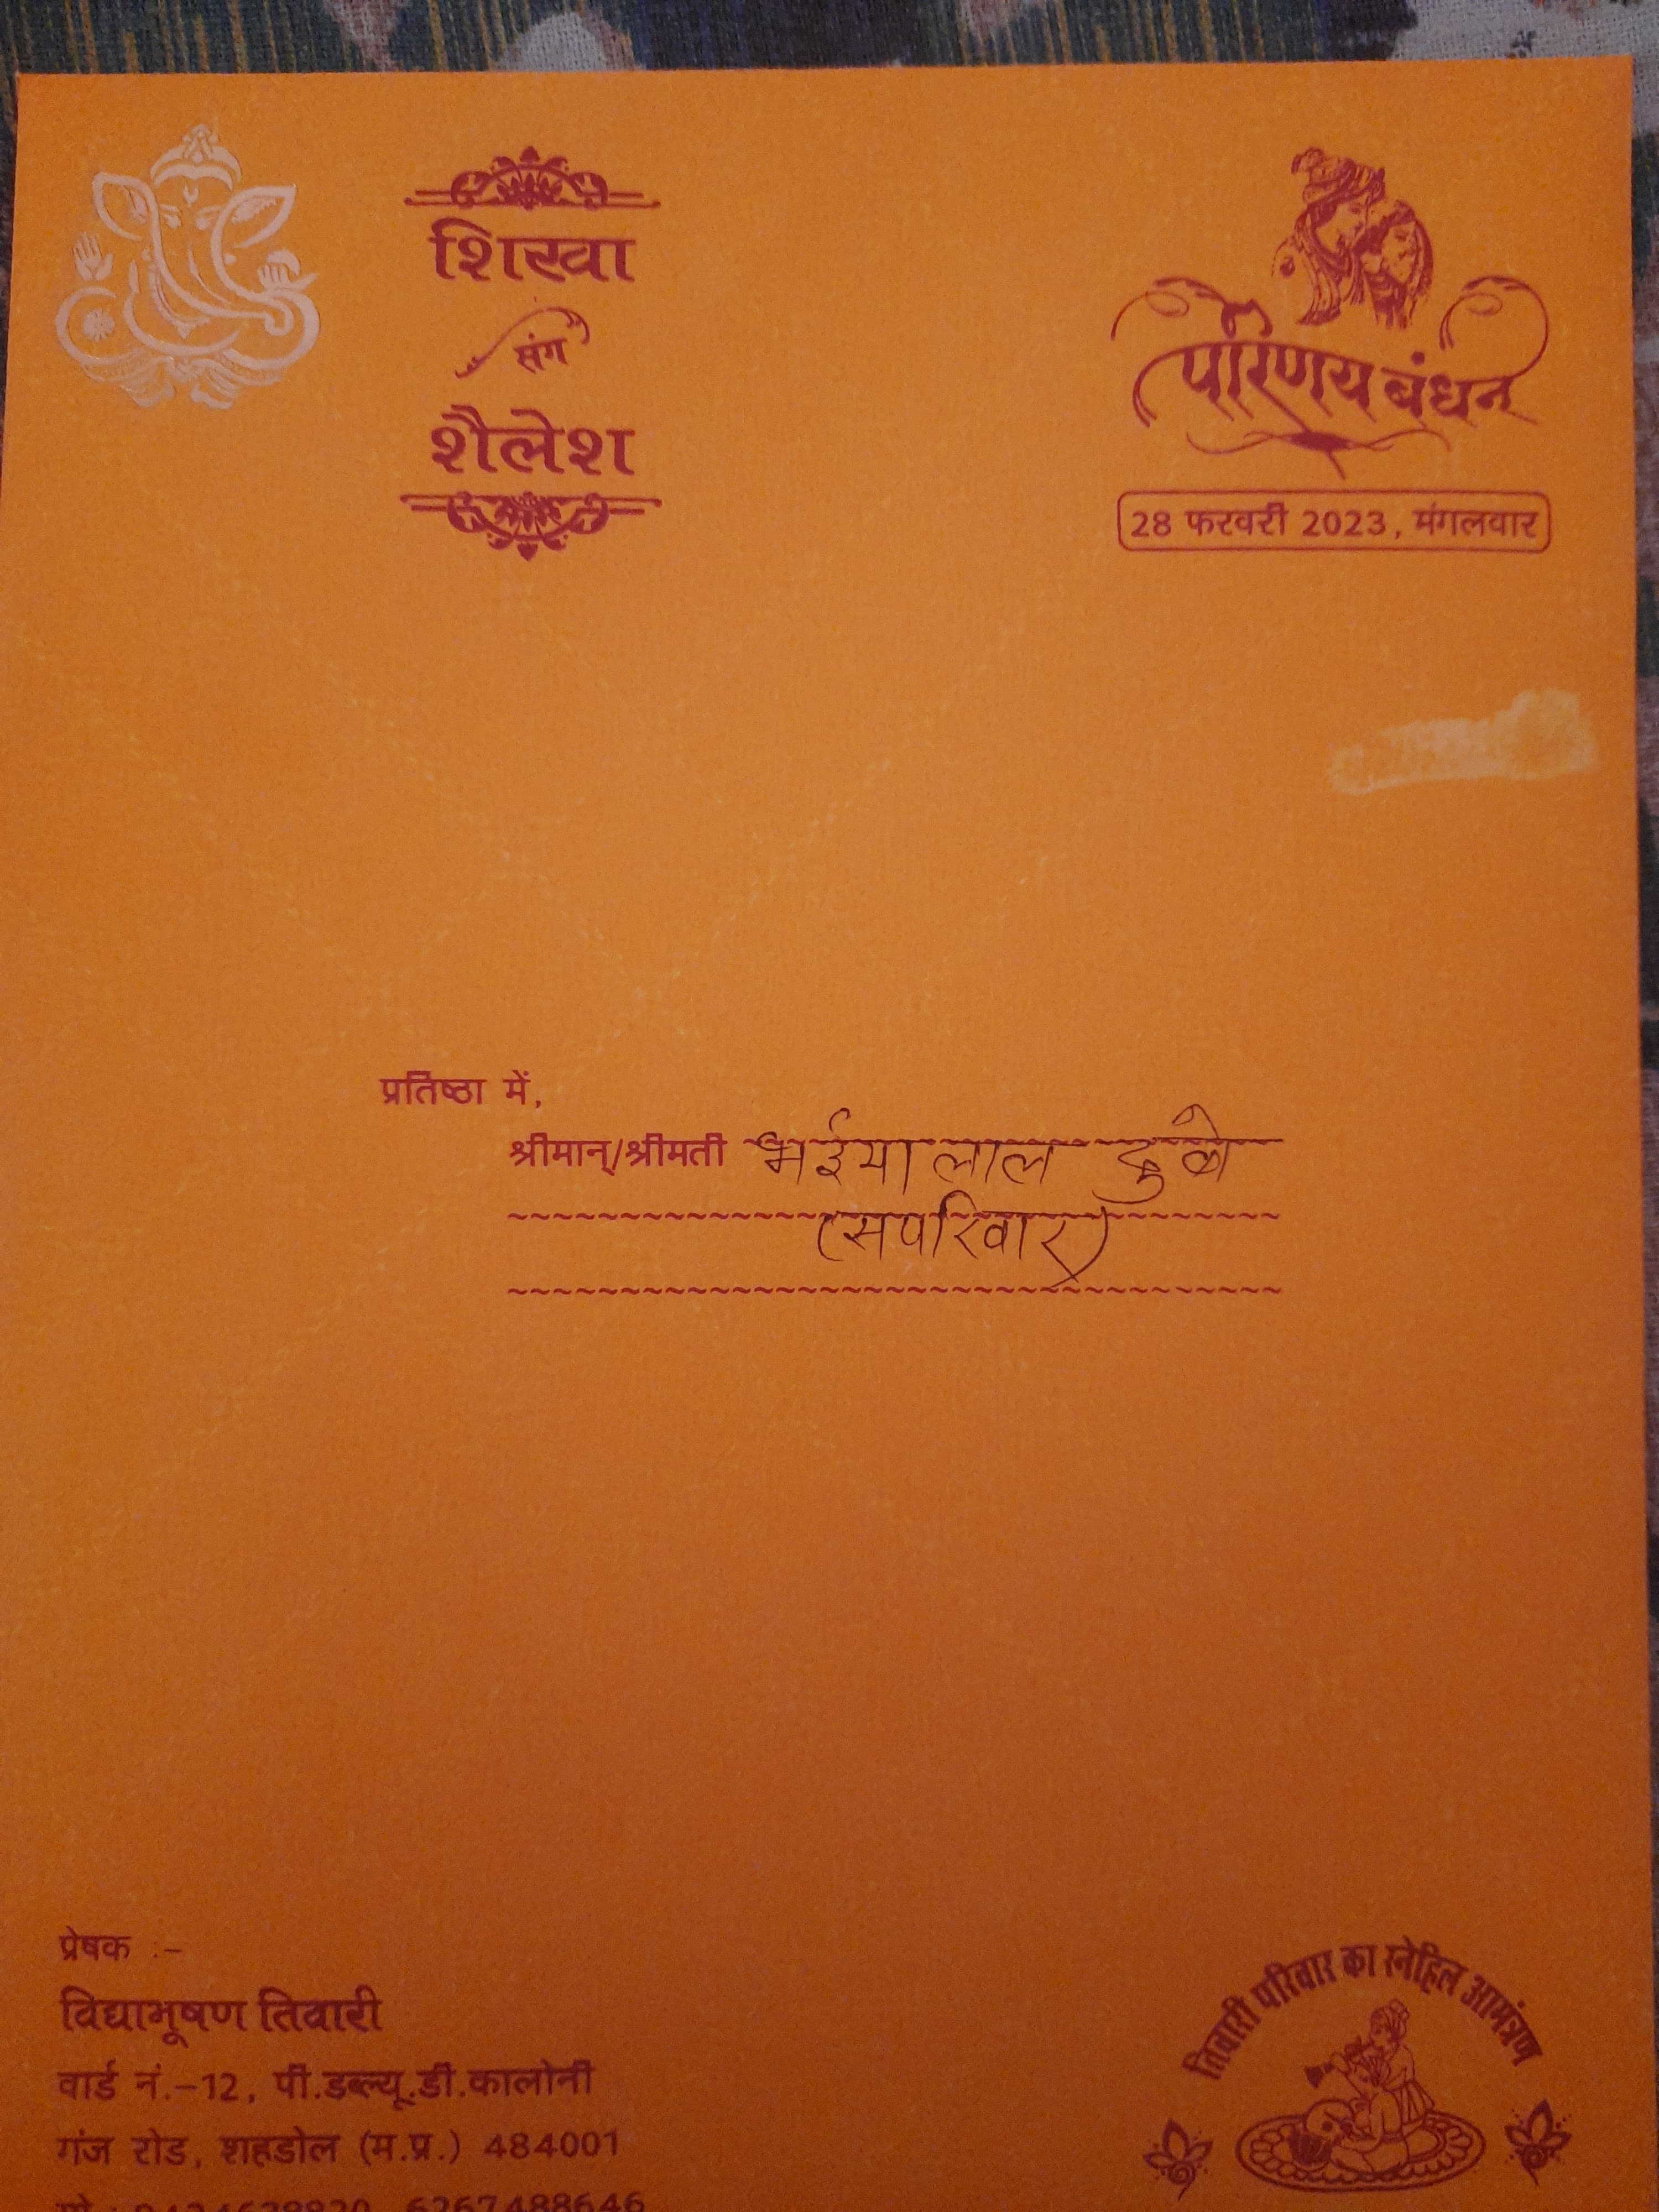 शिखा
संग
शैलेश
परिणय बंधन
28 फरवरी 2023, मंगलवार
प्रतिष्ठा में,
श्रीमान्/श्रीमती भईया लाल दुबे
(सपरिवार)
प्रेषक :-
विद्याभूषण तिवारी
वार्ड नं.-12, पी.डब्ल्यू.डी.कालोनी
गंज रोड, शहडोल (म.प्र.) 484001
6267488646
तिवारी परिवार का स्नेहिल आमंत्रण